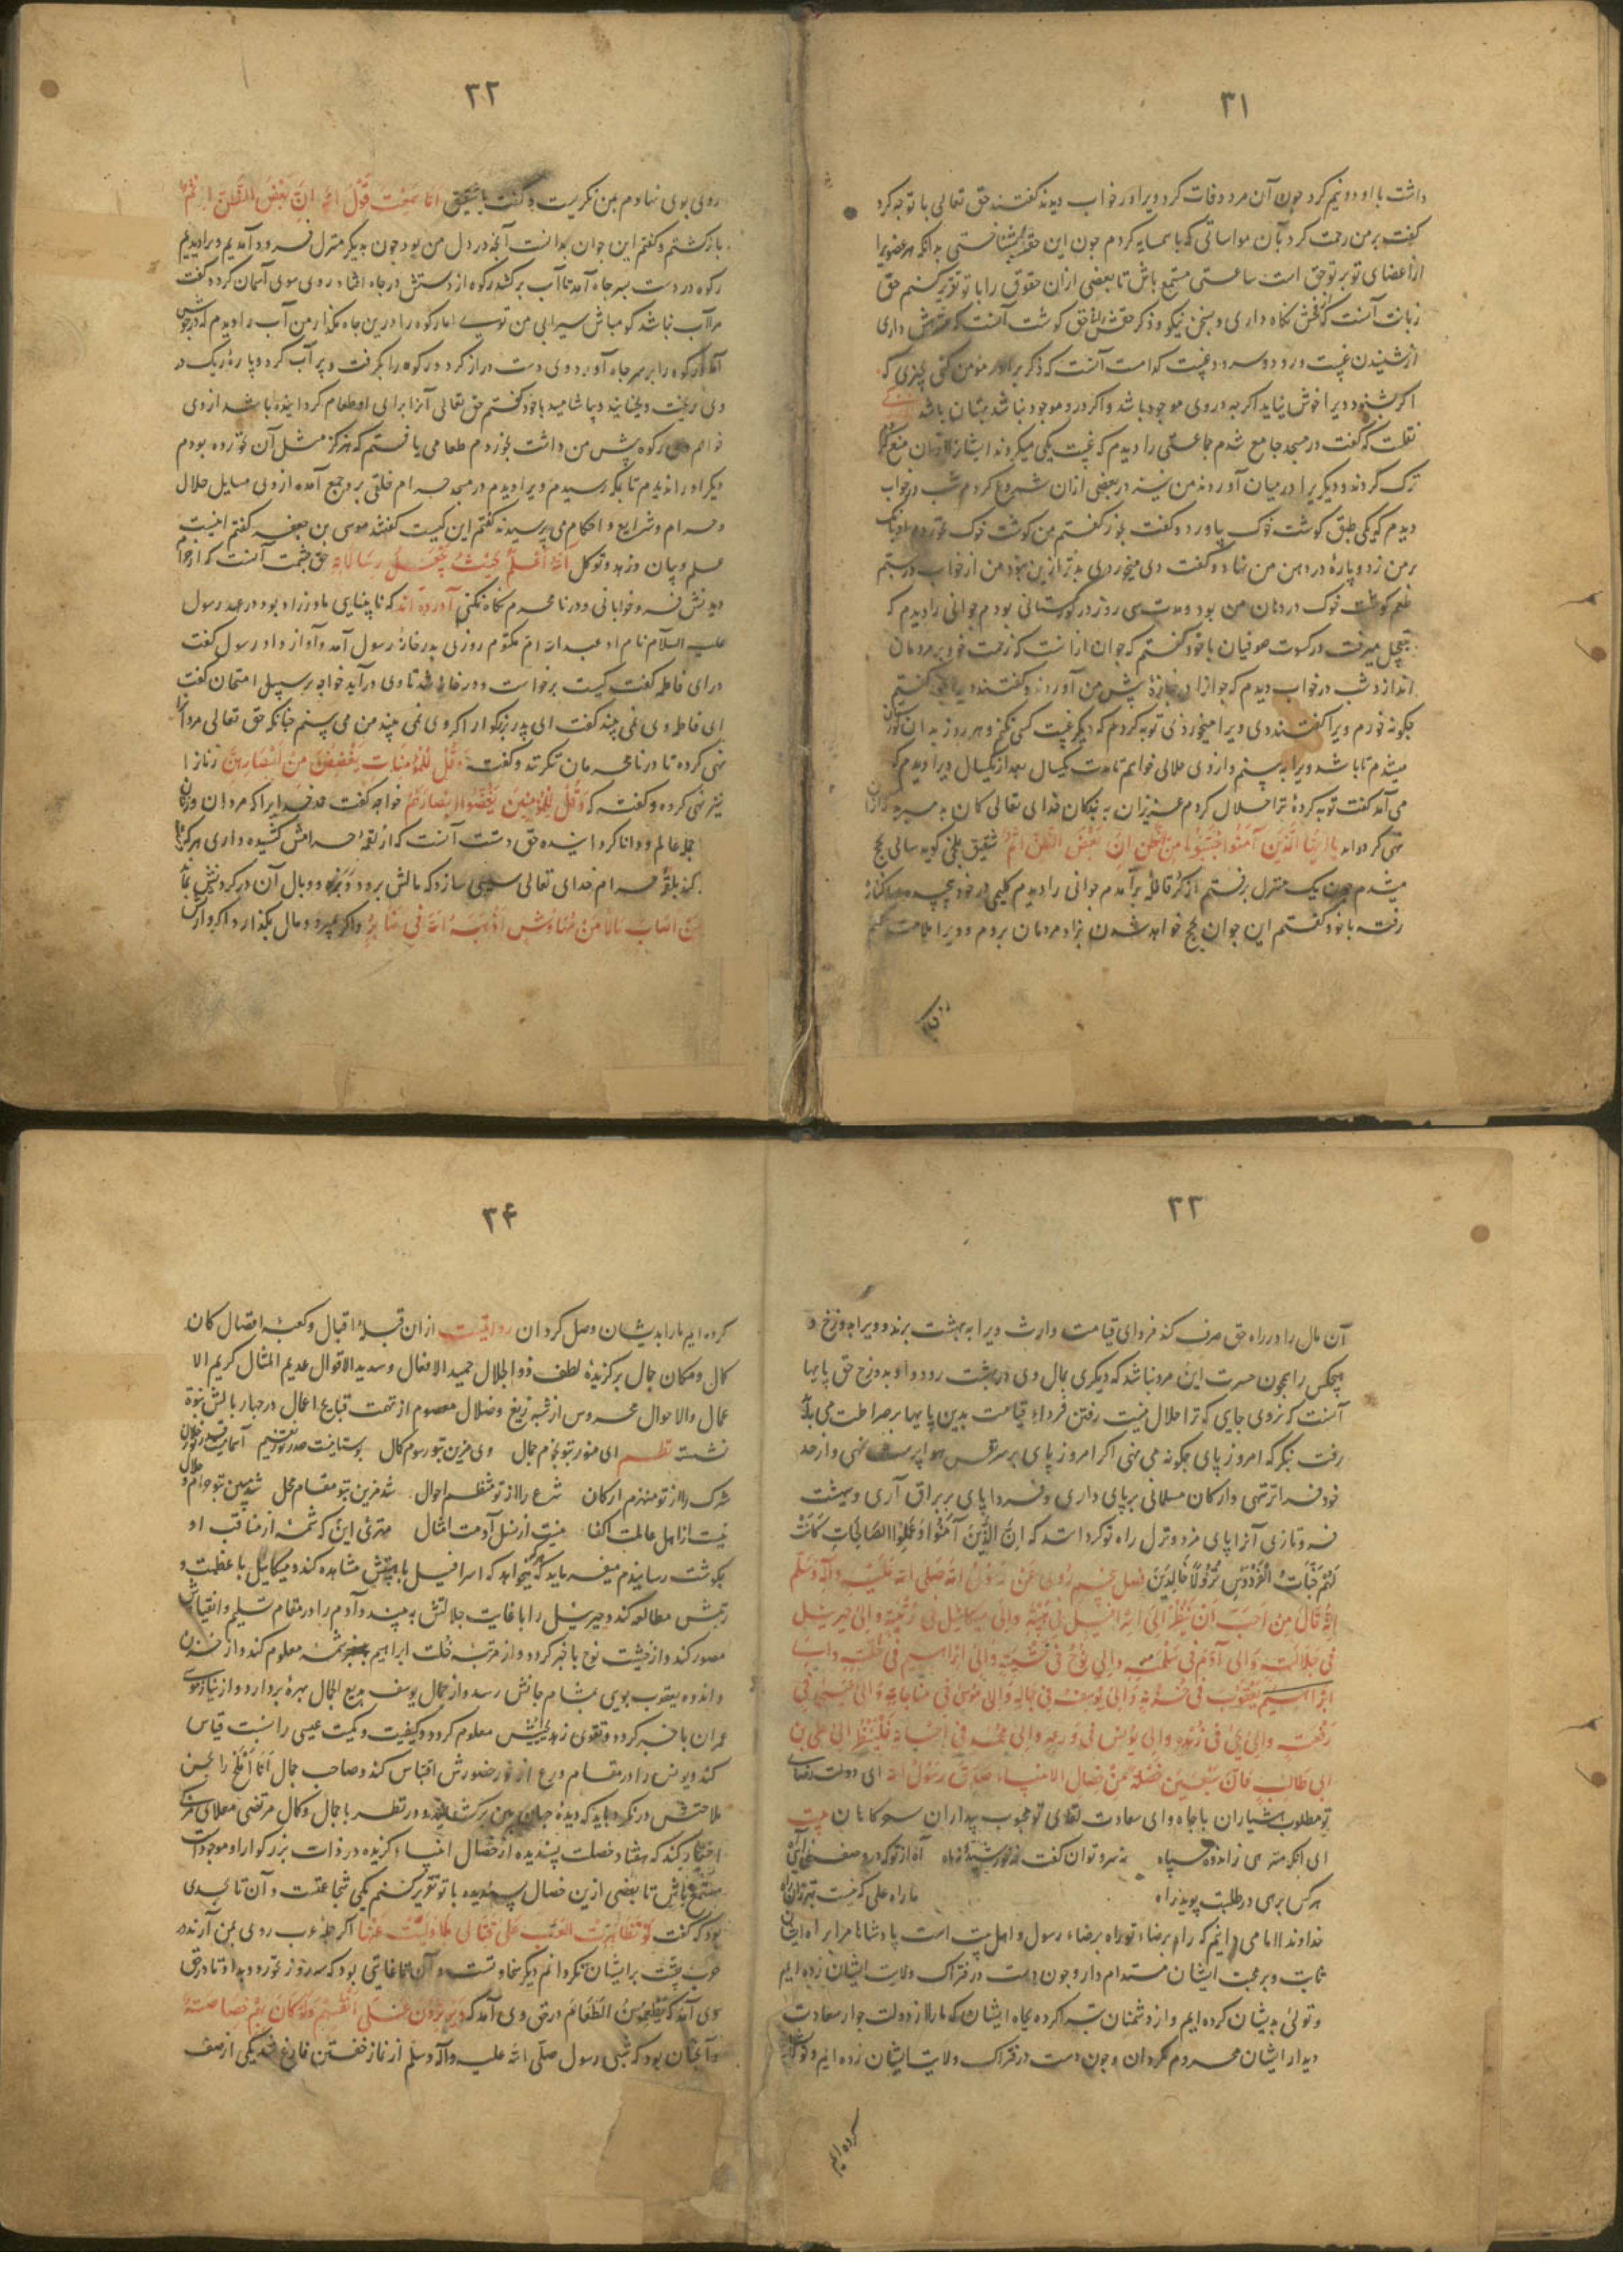 ۳۱
داشت با او دو نیم کرد چون آن مرد وفات کرد ویرا در خواب دیدند گفتند حق تعالی با تو چه کرد
گفت بر من رحمت کرد بآن مواساتی که با همسایه کردم چون این حق بشناختی بدانکه هر عضویرا
از اعضای تو بر تو حق است ساعتی مستمع باش تا بعضی ازان حقوق را با تو تقریر کنم حق
زبان آنست که از فحش نگاه داری و بسخن نیکو و ذکر حق حق گوشت آنست که داری
از شنیدن غیبت و درد و سرود و غیبت کدامست آنست که ذکر برادر مؤمن کنی بچیزی که
اگر بشنود ویرا خوش نیاید اگرچه در وی موجود باشد و اگر در و موجود نباشد بهتان باشد
نقلست که گفت در مسجد جامع شدم جماعتی را دیدم که غیبت یکی میکردند ایشانرا ازان منع کردم
ترک کردند و دیگریرا در میان آوردند من نیز در بعضی ازان شروع کردم شب در خواب
دیدم که یکی طبق گوشت خوک بیاورد و گفت بخور گفتم من گوشت خوک نخورم او بانک
بر من زد و پارهٔ در دهن من نهاد و گفت دی میخوردی بدتر ازین بود من از خواب درجستم
طعم گوشت خوک در دهان من بود و مدت سی روز در گورستانی بودم جوانی را دیدم که
میرفت در کسوت صوفیان با خود گفتم که جوان ازانست که زحمت خود بر مردمان
اندازد شب در خواب دیدم که جنازهٔ پیش من آوردند و گفتند ویرا بخور گفتم
چگونه خورم ویرا گفتند دی ویرا میخوردی توبه کردم که دیگر غیبت کسی نکنم و هر روز بدان گورستان
میشدم تا باشد ویرا به بینم و از وی حلالی خواهم تا مدت یکسال بعد از یکسال ویرا دیدم که
می آمد گفت توبه کردهٔ ترا حلال کردم عزیزان به بندگان خدای تعالی گمان بد مبرید که ازان
نهی کرد یا ایها الذین آمنوا اجتنبوا من الظن ان بعض الظن اثم شقیق بلخی گوید سالی بحج
میشدم چون یک منزل برفتم از قافله برآمدم جوانی را دیدم گلیمی در خود پیچیده
رفته با خود گفتم این جوان بحج خواهد شدن نزد مردمان بروم و ویرا ملامت کنم
۳۲
روی بوی نهادم بمن نگریست و گفت یا شقیق اما سمعت قول الله ان بعض الظن اثم
بازگشتم و گفتم این جوان بدانست آنچه در دل من بود چون به یکی منزل فرود آمدیم ویرا دیدم
رکوه در دست بسر چاه آمد تا آب برکشد رکوه از دستش در چاه افتاد روی سوی آسمان کرد و گفت
مرا آب نباشد گو مباش سیرابی من توی اما رکوه را درین چاه مگذار من آب را دیدم که در جوش
آمد رکوه را بر سر چاه آورد وی دست دراز کرد و رکوه را بگرفت و پر آب کرد و پارهٔ ریک در
وی ریخت و بجنبانید و بیاشامید با خود گفتم حق تعالی آنرا برای او طعام گردانیده باشد از وی
خواهم رکوه پیش من داشت بخوردم طعامی یافتم که هرگز مثل آن نخورده بودم
دیگر او را ندیدم تا بمکه رسیدم ویرا دیدم در مسجد حرام خلقی برو جمع آمده از وی مسایل حلال
و حرام و شرایع و احکام می پرسیدند گفتم این کیست گفتند موسی بن جعفر گفتم اینست
علم و بیان و زهد و توکل الله اعلم حیث یجعل رسالاته حق چشمت آنست که از حرام
دیدنش فرو خوابانی و در نامحرم نگاه نکنی آورده اند که نابینایی مادرزاد بود در عهد رسول
علیه السلام نام او عبدالله ام مکتوم روزی بدر خانهٔ رسول آمد و آواز داد رسول گفت
درای فاطمه گفت کیست برخاست و در خانه شد تا وی درآید خواجه بر سبیل امتحان گفت
ای فاطمه وی نمی بیند گفت ای پدر بزرگوار اگر وی نمی بیند من می بینم چنانکه حق تعالی مردانرا
نهی کرده تا در نامحرمان ننگرند و گفت و قل للمؤمنات یغضضن من ابصارهن زنانرا
نیز نهی کرده و گفته که و قل للمؤمنین یغضوا ابصارهم خواجه گفت حمد خدایرا که مردان و زنان
عالم و دانا گردانیده حق دستت آنست که از لقمهٔ حرامش کشیده داری هر که
کند بلقمهٔ حرام خدای تعالی سببی سازد که مالش برود و بزه و وبال آن در گردنش بماند
من اصاب مالا من مهاوش اذهبه الله فی نهابر و اگر بمیرد و مال بگذارد اگر وارث
۳۳
آن مال را در راه حق صرف کند فردای قیامت وارث ویرا به بهشت برند و ویرا بدوزخ و
هیچکس را همچون حسرت این مرد نباشد که دیگری بمال وی در بهشت رود و او بدوزخ حق پایها
آنست که نروی جایی که ترا حلال نیست رفتن فرداء قیامت بدین پایها بر صراط می باید
رفت بنگر که امروز پای چگونه می نهی اگر امروز پای بر سر نفس هوا پرست نهی و از حد
خود فراتر ننهی و ارکان مسلمانی برپای داری و فردا پای بر براق آری و بهشت
فرو تازی آنرا پای مزد و نزل راه تو کرده است که ان الذین آمنوا و عملوا الصالحات کانت
لهم جنات الفردوس نزولا خالدین فصل پنجم روی عن رسول الله صلی الله علیه و آله وسلم
انه قال من احب ان ینظر الی اسرافیل فی هیبته والی میکائیل فی رتبته والی جبرئیل
فی جلالته والی آدم فی سلمه والی نوح فی خشیته والی ابراهیم فی خلته والی
یعقوب فی حزنه والی یوسف فی جماله والی موسی فی مناجاته والی عیسی فی
والی یحیی فی زهده والی یونس فی ورعه والی محمد فی فلینظر الی علی بن
ابی طالب فان سبعین خصلة من خصال الانبیاء صدق رسول الله ای دولت لقای
تو مطلوب هشیاران با جاه و ای سعادت لقای تو محبوب بیداران سحرگاهان بیت
هر کس برهی در طلبت پوید راه ما راه علی که نیست بهتر زان راه
خداوندا اما می دانیم که راه برضاء تو راه برضاء رسول و اهل بیت است پادشاها ما را براه ایشان
ثابت و بر محبت ایشان مستدام دار و چون دست در فتراک ولایت ایشان زده ایم
و تولی بدیشان کرده ایم و از دشمنان تبرا کرده بجاه ایشان که ما را از دولت جوار سعادت
دیدار ایشان محروم مگردان و چون دست در فتراک ولایت ایشان زده ایم و تولا
کرده ایم
۳۴
کرده ایم ما را بدیشان وصل گردان روایتست ازان قبلهٔ اقبال و کعبهٔ افضال کان
کمال و مکان جمال برگزیدهٔ لطف ذوالجلال حمید الافعال و سدید الاقوال عدیم المثال کریم الا
عمال والاحوال محروس از شبه زیغ و ضلال معصوم از تهمت قبایح اعمال در چهار بالش نبوة
نشسته نظم ای منور بتو نجوم جمال وی مزین بتو رسوم کمال بوستانیست صدر تو ز نعیم آسمانیست قدر تو ز جلال
شرک را از تو منهزم ارکان شرع را از تو منتظم احوال شد مزین بتو مقام محل شد مبین بتو حرام و حلال
نیست از اهل عالمت اکفا نیست از نسل آدمت امثال مهتری این که شمهٔ از مناقب او
بگوشت رسانیدم میفرماید که هر که خواهد که اسرافیل با هیبتش مشاهده کند و میکاییل با عظمت و
رتبتش مطالعه کند و جبرئیل را با غایت جلالتش به بیند و آدم را در مقام تسلیم و انقیادش
مصور کند و از خشیت نوح با خبر گردد و از مرتبهٔ خلت ابراهیم شمهٔ معلوم کند و از حزن
و اندوه یعقوب بویی بمشام جانش رسد و از جمال یوسف بدیع الجمال بهرهٔ بردارد و از نیاز موسی
عمران با خبر گردد و تقوی زهد معلوم گردد و کیفیت و کمیت عیسی را نسبت قیاس
کند و یونس را در مقام ورع از نور حضورش اقتباس کند و صاحب جمال انا املح را بحسن
ملاحتش درنگرد باید که دیدهٔ جهان بین برگشاید و در نظر با جمال و کمال مرتضی معلای
کند که هفتاد خصلت پسندیده از خصال انبیاء گزیده در ذات بزرگوار او موجودست
مستمع باش تا بعضی ازین خصال پسندیده با تو تقریر کنم یکی شجاعتست و آن تا بحدی
بود که گفت لو تظاهرت العرب علی قتالی لما ولیت عنها اگر جملهٔ عرب روی بمن آرند در
حرب پشت بر ایشان نگردانم دیگر سخاوتست و آن تا غایتی بود که سه روز نخورد و بداد تا در حق
وی آمد که یطعمون الطعام در حق وی آمد که و یؤثرون علی انفسهم ولو کان بهم خصاصة
و آنچنان بود که شبی رسول صلی الله علیه و آله وسلم از نماز خفتن فارغ شد یکی از صف